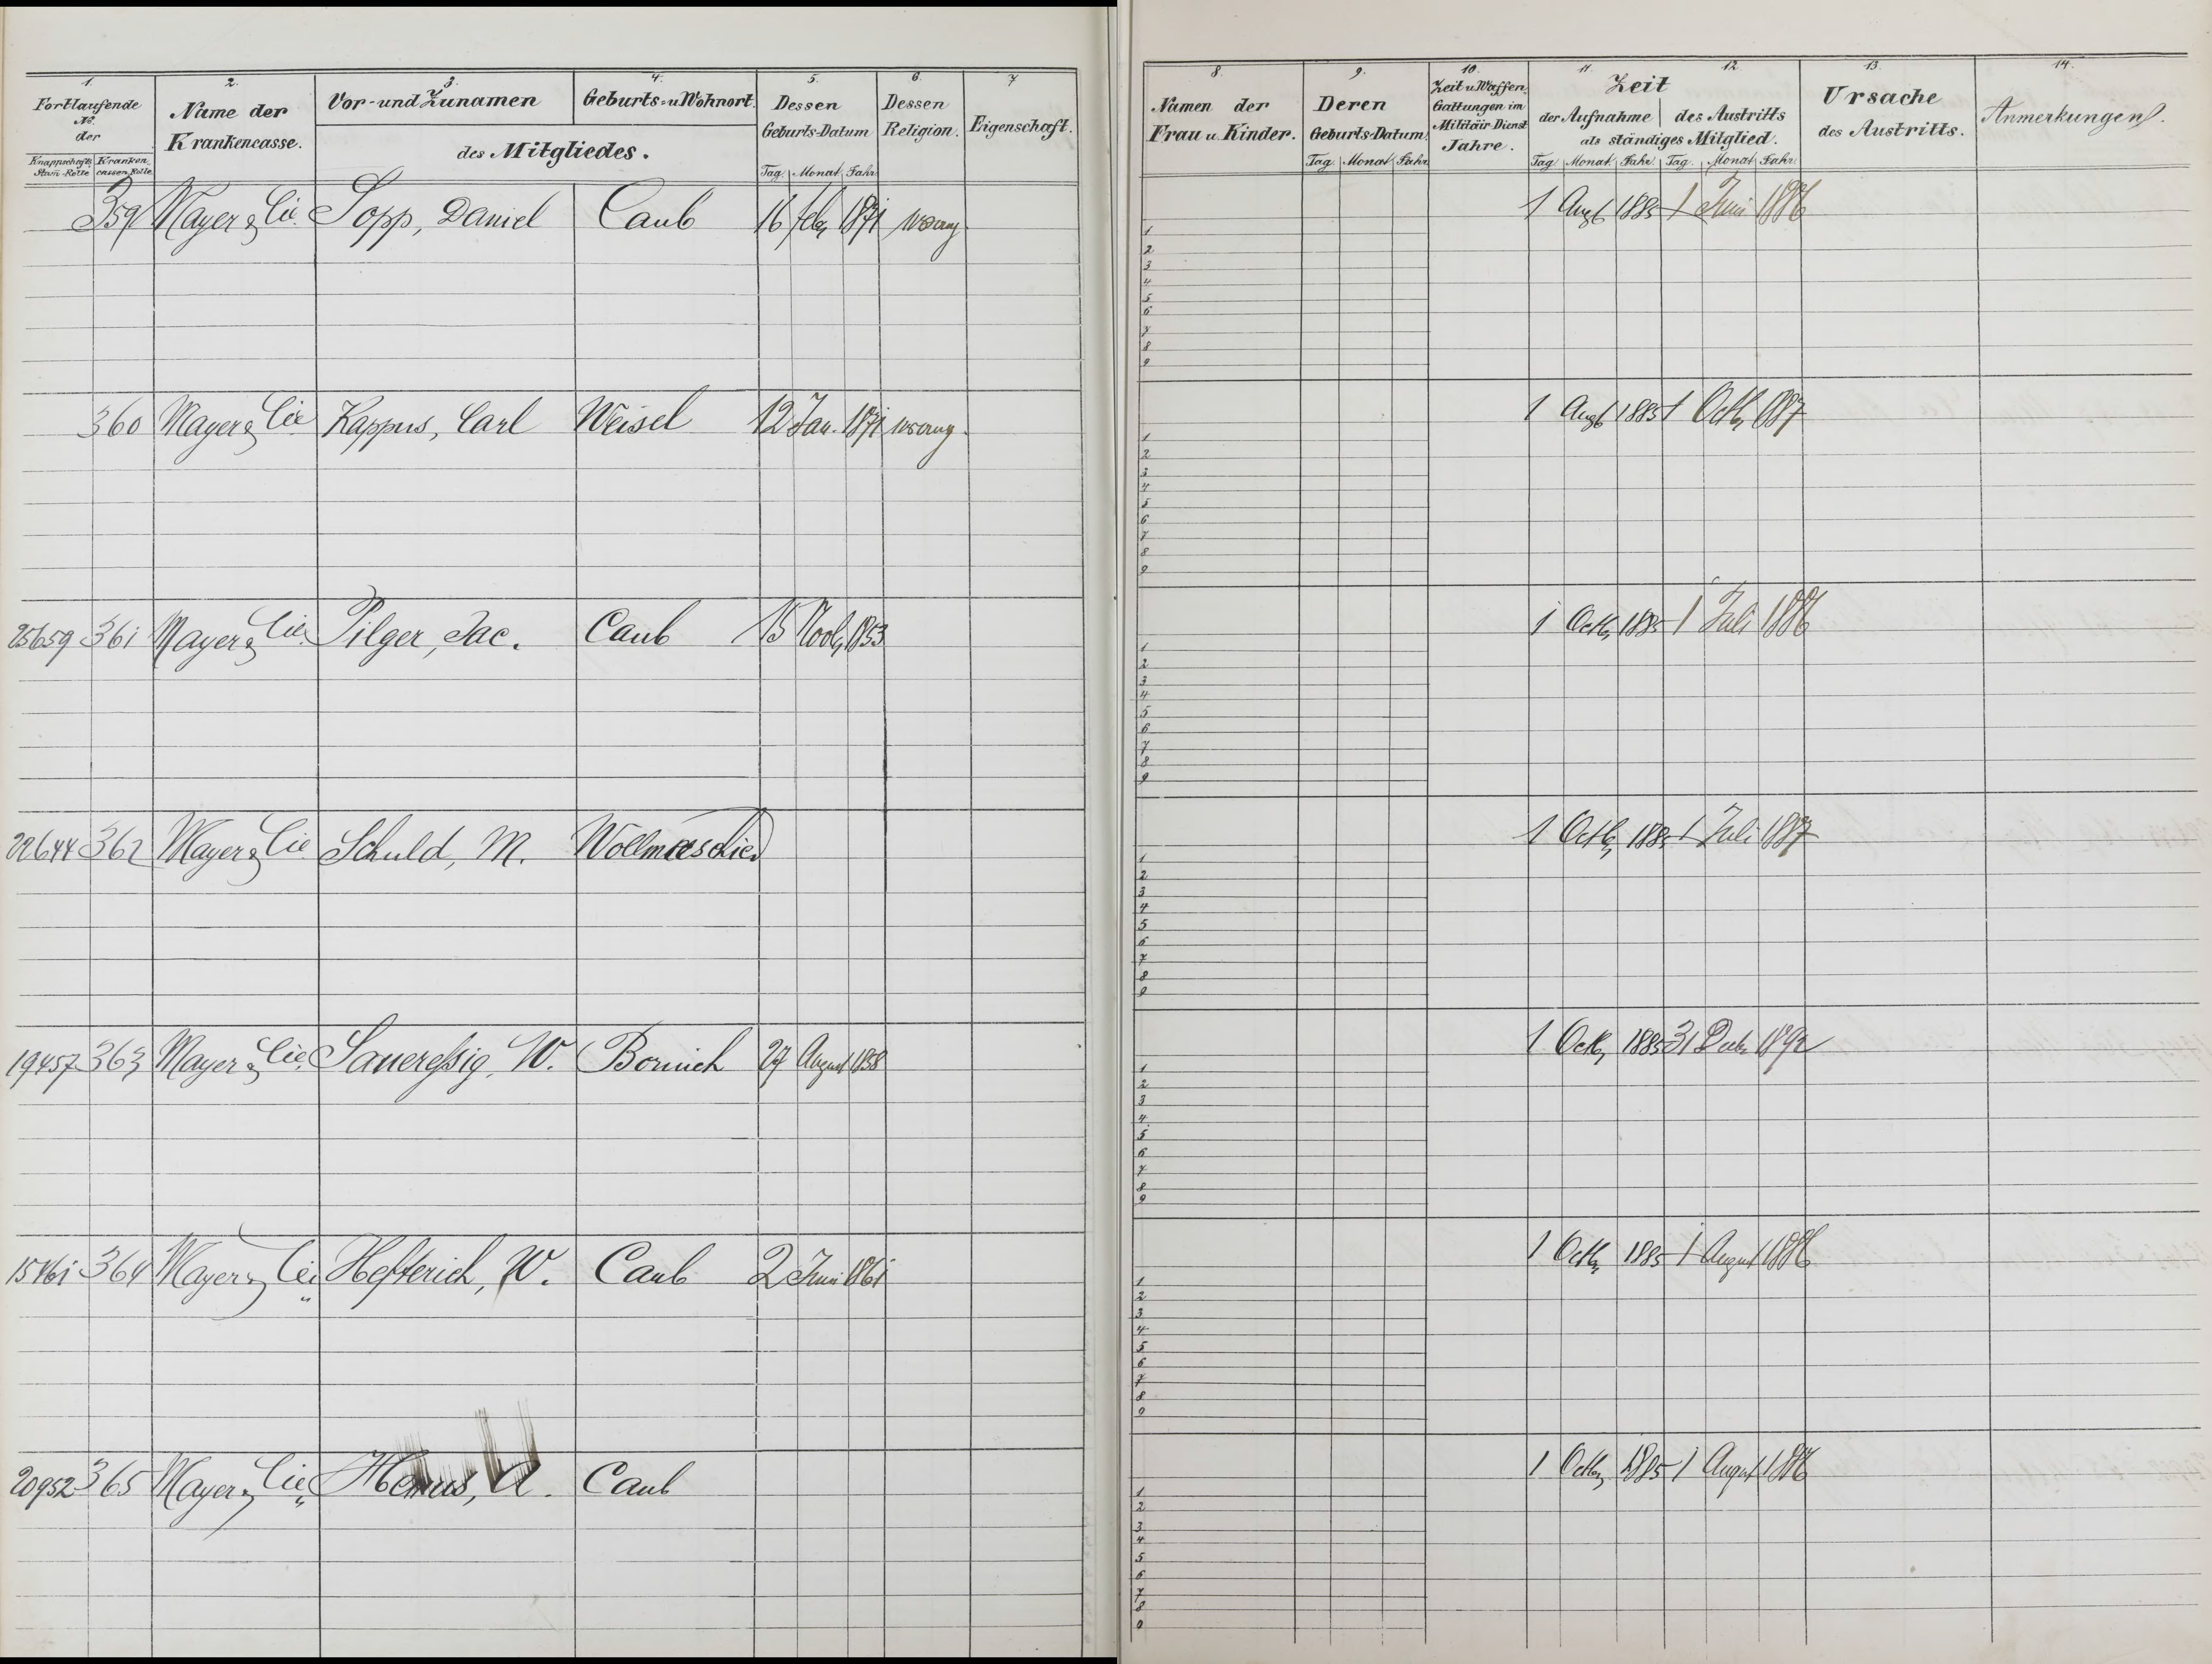 1. 2. 3. 4. 5. 6. 7
Fortlaufende No. der
Knappschafts Stam-Rolle Kranken-cassen-Rolle
Name der Krankencasse.
Vor- und Zunamen
Geburts- u. Wohnort.
des Mitgliedes.
Dessen Geburts-Datum
Tag. Monat Jahr.
Dessen Religion.
Eigenschaft.
359 Mayer & Cie. Sopp, Daniel Caub 16 Feb. 1871 evang.
360 Mayer & Cie Kappus, Carl Weisel 12 Jan. 1871 evang.
25659 361 Mayer & Cie. Pilger, Jac. Caub 15 Novb. 1853
22644 362 Mayer & Cie Schuld, M. Wollmerschied
19457 363 Mayer & Cie. Sauereßig, W. Bornich 27 August 1858
15461 364 Mayer & Cie Hefterich, W. Caub 2 Juni 1861
20952 365 Mayer & Cie A. Caub
8. 9. 10. 11. 12. 13. 14.
Namen der Frau u. Kinder.
Deren Geburts-Datum
Tag. Monat Jahr
Zeit u. Waffen-Gattungen im Militair Dienst Jahre.
Zeit
der Aufnahme des Austritts
als ständiges Mitglied.
Tag Monat Jahr Tag. Monat Jahr
Ursache des Austritts.
Anmerkungen.
1 Augt 1885 1 Juni 1886
1
2
3
4
5
6
7
8
9
1 Augt 1885 1 Octb. 1887
1
2
3
4
5
6
7
8
9
1 Octb. 1885 1 Juli 1886
1
2
3
4
5
6
7
8
9
1 Octb. 1885 1 Juli 1887
1
2
3
4
5
6
7
8
9
1 Octb. 1885 31 Decb. 1892
1
2
3
4
5
6
7
8
9
1 Octb. 1885 1 August 1886
1
2
3
4
5
6
7
8
9
1 Octb. 1885 1 August 1886
1
2
3
4
5
6
7
8
9